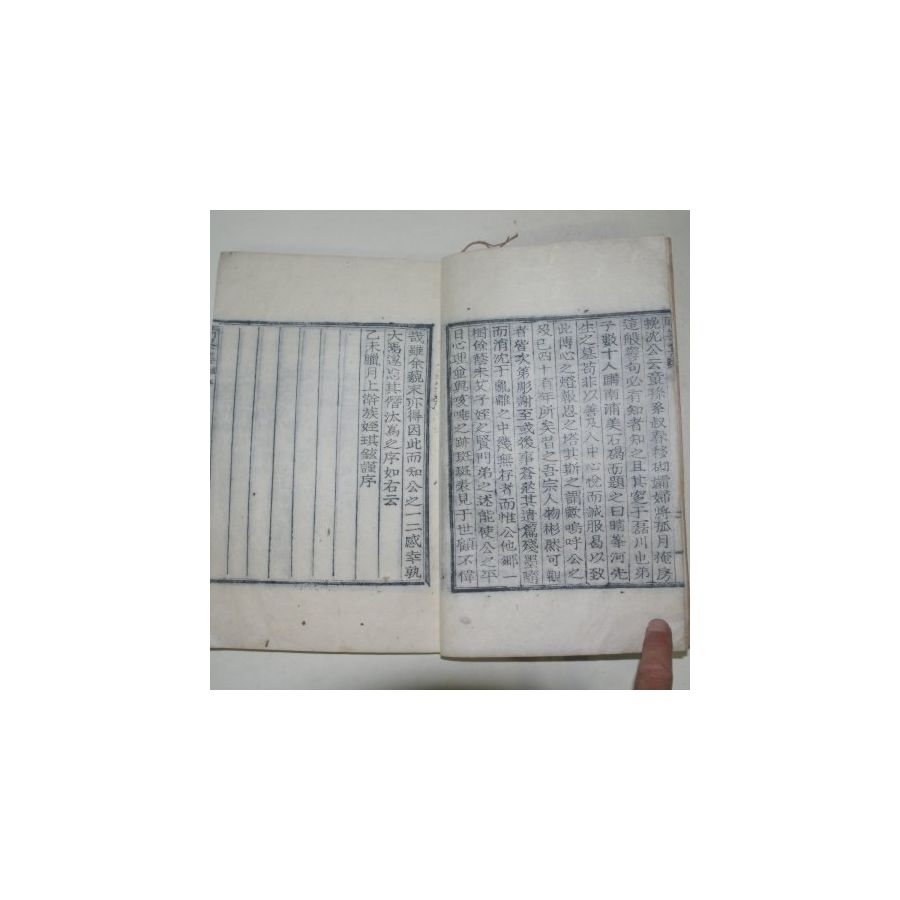 挽沈公云童孫系叔春移砌孀婦將孤月掩房
這般警句必有知者知之且其窆于磊川也弟
子數十人購南浦美石碣而題之曰晴峯河先
生之墓苟非以善及人中心悅而誠服曷以致
此傳心之燈報恩之塔其斯之謂歟嗚呼公之
歿已四十有年所矣當之吾宗人物彬然可觀
者皆次第彫謝至或後事蒼茫其遺篇殘墨隨
而消沈于亂離之中幾無存者而惟公他鄉一
樹餘蔭未艾子姪之賢門弟之述能使公之平
日心迹並與咳唾之跡班班表見于世顧不偉
哉雖余藐末亦得因此而知公之一二感幸孰
大焉遂忘其僭汰爲之序如右云
乙未臘月上澣族姪琪鉉謹序